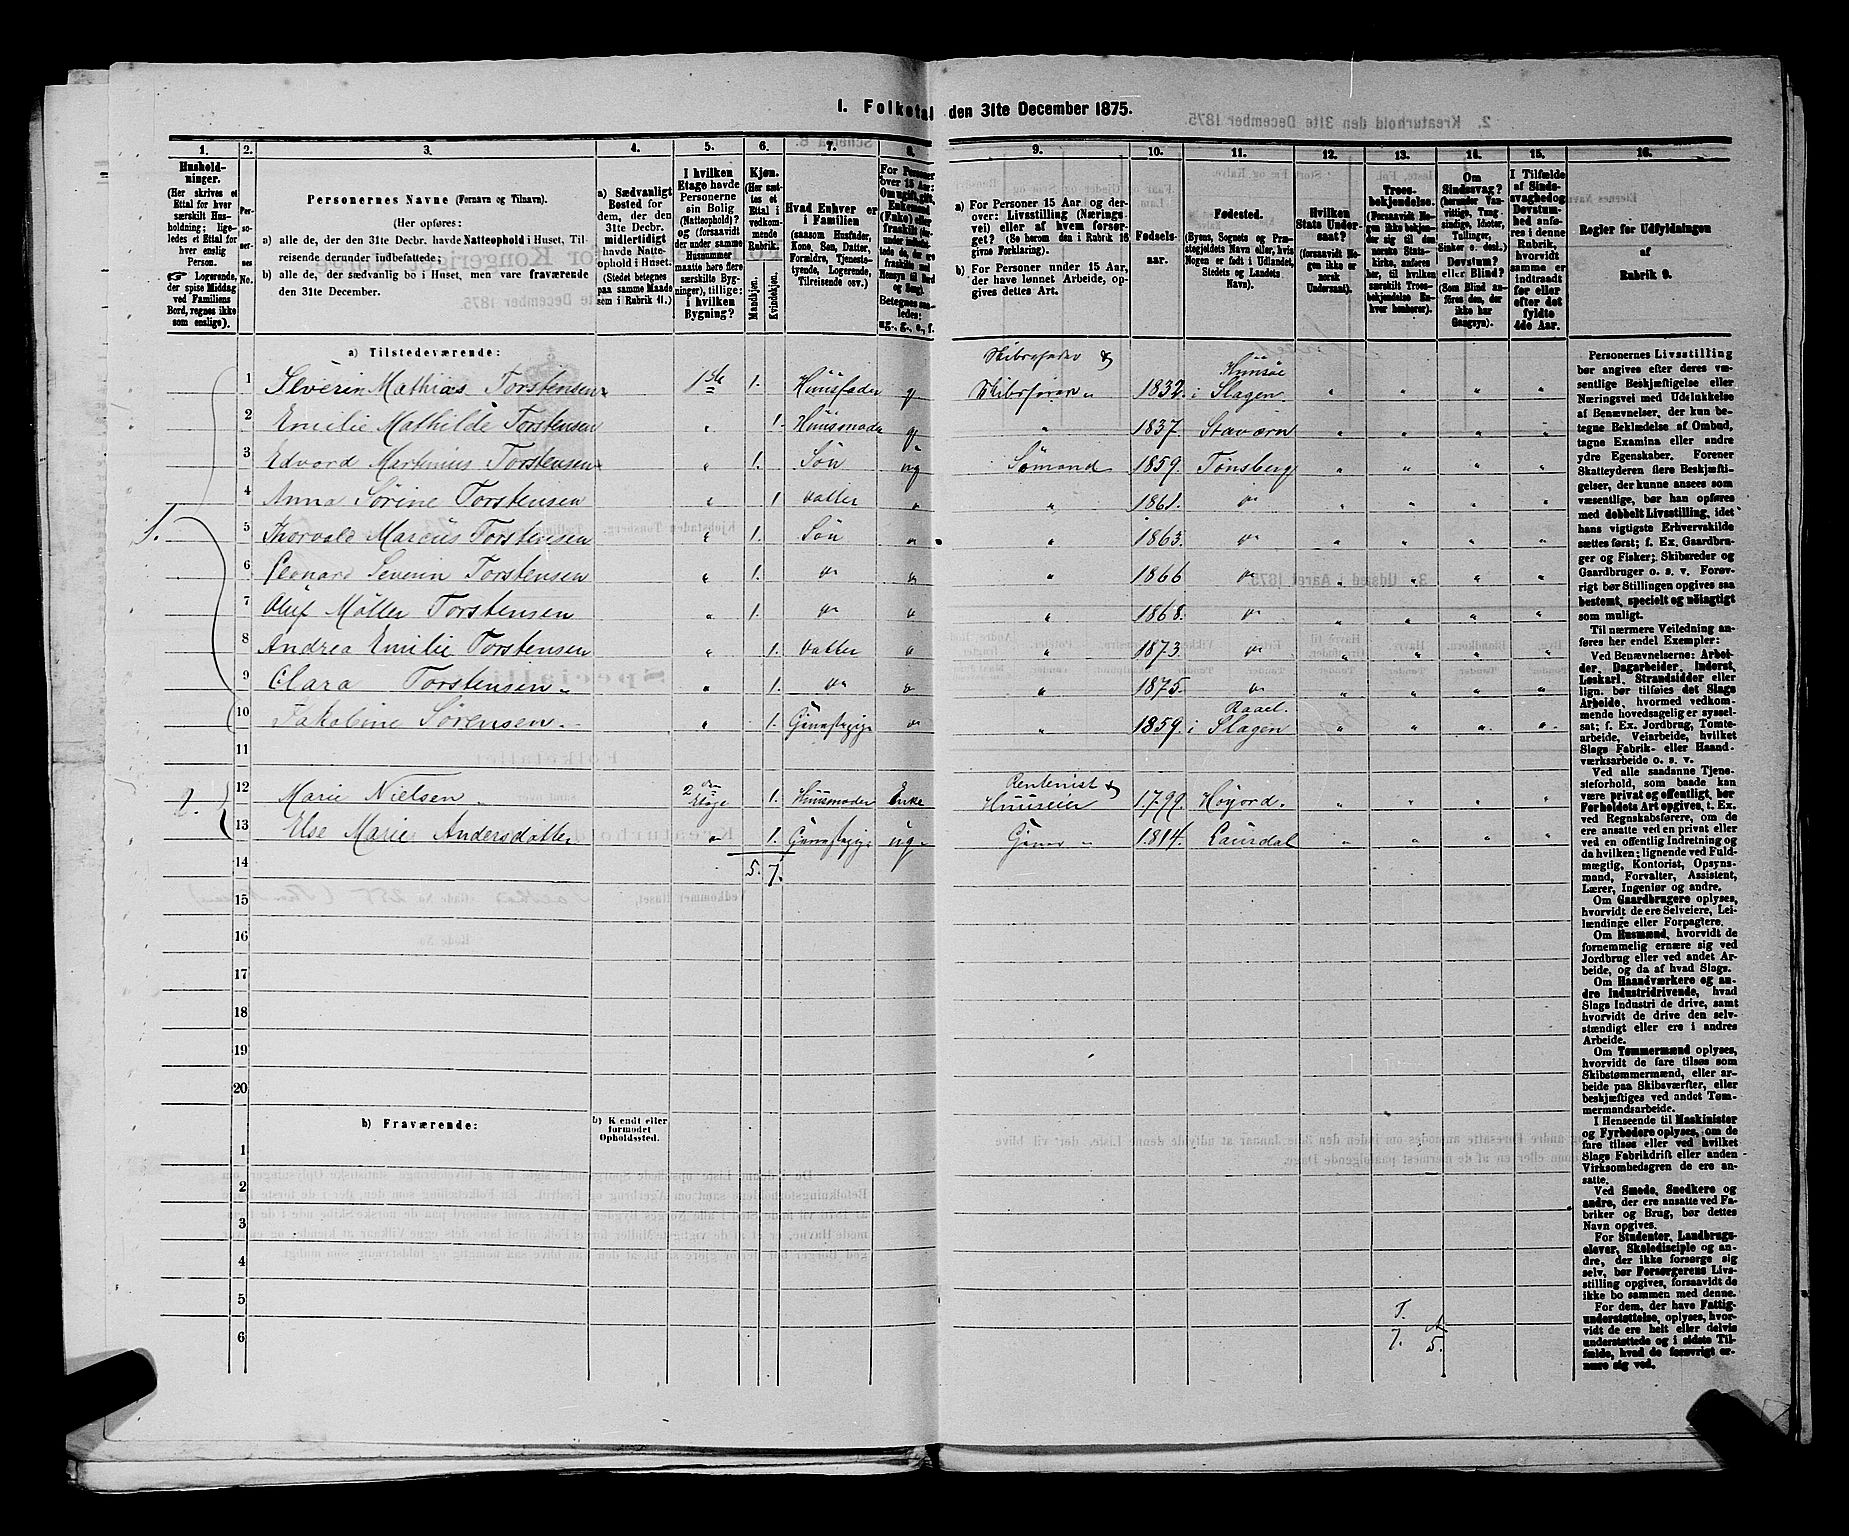 1. Folketal den 31te December 1875.
1. 2. 3. 4. 5. 6. 7. 8. 9. 10. 11. 12. 13. 14. 15. 16.
Hushold-
ninger.
(Her skrives et
Ettal for hver
særskilt Hus-
holdning; lige-
ledes et Ettal for
hver enslig
Person.
☞ Logerende,
der spise Middag
ved Familiens
Bord, regnes ikke
som enslige).
Per-
so-
ner-
nes
No.
Personernes Navne (Fornavn og Tilnavn).
(Her opføres:
a) alle de, der den 31te Decbr. havde Natteophold i Huset, Til-
reisende derunder indbefattede;
b) alle de, der sædvanlig bo i Huset, men vare fraværende
den 31te December.
a) Sædvanligt
Bosted for
dem, der den
31te Decbr.
midlertidigt
havde Natte-
ophold i Huset.
(Stedet betegnes
paa samme Maade
som i Rubrik 11.)
I hvilken
Etage havde
Personerne
sin Bolig
(Natteophold)?
og (forsaavidt
der under samme
Husnummer
maatte høre flere
særskilte Byg-
ninger), tillige:
i hvilken
Bygning?
Kjøn.
(Her sæt-
tes et
Ettal i
vedkom-
mende
Rubrik.
Mandkjøn.
Kvindekjøn.
Hvad Enhver er
i Familien
(saasom Husfader,
Kone, Søn, Datter,
Forældre, Tjeneste-
tyende, Logerende,
Tilreisende osv.)
For Personer
over 15 Aar:
Om ugift, gift,
Enkemand
(Enke) eller
fraskilt
Betegnes saa-
ledes:
ug., g., e., f.
a) For Personer 15 Aar og der-
over: Livsstilling (Nærings-
vei) eller af hvem forsør-
get? (Se herom den i Rubrik 16
givne Forklaring).
b) For Personer under 15 Aar,
der have lønnet Arbeide, op-
gives dettes Art.
Fødsels-
aar.
Fødested.
(Byens, Sognets og Præ-
stegjeldets Navn eller, hvis
Nogen er født i Udlandet,
Stedets og Landets
Navn).
Hvilken
Stats Under-
saat?
(forsaavidt No-
gen ikke er
norsk
Undersaat).
Troes-
bekjendelse.
(Forsaavidt No-
gen ikke bekjen-
der sig til den
norske Stats-
kirke, anføres
her, til hvilken
særskilt Troes-
bekjendelse En-
hver henhører).
Om
Sindssvag?
(herunder Van-
vittige, Tung-
sindige, Idioter,
Tullinger,
Sinker o. desl.)
Døvstum?
eller Blind?
(Som Blind an-
føres den, der
ikke har
Gangsyn).
I Tilfælde
af Sinds-
svaghed og
Døvstum-
hed anfø-
res i denne
Rubrik,
hvorvidt
samme er
indtraadt
før eller
efter det
fyldte
4de Aar.
Regler for Udfyldningen
af
Rubrik 9.
a) Tilstedeværende:
1 Severin Mathias Torstensen 1ste 1. Huusfader g Skibsreder & Skibsfører 1832. Husøe i Slagen " " " "
2 Emilie Mathilde Torstensen " 1. Huusmoder g. " 1837. Staværn " " " "
3 Edvard Martinius Torstensen " 1. Søn ug Sømand 1859. Tønsberg " " " "
4 Anna Sørine Torstensen " 1 Datter " " 1861. " " " "
5 Thorvald Marcus Torstensen " 1. Søn " " 1863. " " " "
6 Leonard Severin Torstensen " 1. " " 1866 " " " "
7 Oluf Møller Torstensen " 1. " " 1868. " " " "
8 Andrea Emilie Torstensen " 1. Datter " " 1873. " " " "
9 Clara Torstensen " 1. " " 1875. " " " "
10 Jakobine Sørensen " 1. " 1859. i Slagen " " " "
11
12 Marie Nielsen 2den Etage 1. Huusmoder Enke Rentenist & Huuseier 1799. Høyord. " " " "
13 Else Marie Andersdatter " 1. ug. 1814. Laurdal " " " "
1.
2.
14 5. 7.
15
16
17
18
19
20
b) Fraværende:
b) Kjendt eller
formodet
Opholdssted.
1
2
3
4
5
6
T.
7. 5.
Personernes Livsstilling
bør angives efter deres væ-
sentlige Beskjæftigelse eller
Næringsvei med Udelukkelse
af Benævnelser, der kun be-
tegne Beklædelse af Ombud,
tagne Examina eller andre
ydre Egenskaber. Forener
Skatteyderen flere Beskjæfti-
gelser, der kunne ansees som
væsentlige, bør han opføres
med dobbelt Livsstilling, idet
hans vigtigste Erhvervskilde
sættes først; f. Ex. Gaardbru-
ger og Fisker; Skibsreder og
Gaardbruger o. s. v. Forøv-
rigt bør Stillingen opgives saa
bestemt, specielt og nøiagtigt
som muligt.
Til nærmere Veiledning an-
føres her endel Exempler:
Ved Benævnelserne: Arbei-
der, Dagarbeider, Inderst,
Løskarl, Strandsidder eller
lign. bør tilføies det Slags
Arbeide, hvormed vedkom-
mende hovedsagelig er syssel-
sat; f. Ex. Jordbrug, Tomte-
arbeide, Veiarbeide, hvilket
Slags Fabrik- eller Haand-
værksarbeide o. s. v.
Ved alle saadanne Tjene-
steforhold, som baade kan
være privat og offentligt, bør
Forholdets Art opgives, t. Ex.
ved Regnskabsførere, om de
ere ansatte ved en privat eller
ved en offentlig Indretning og
da hvilken; lignende ved Fuld-
mægtig, Kontorist, Opsyns-
mand, Forvalter, Assistent,
Lærer, Ingeniør og andre.
Om Gaardbrugere oplyses,
hvorvidt de ere Selveiere, Lei-
lændinge eller Forpagtere.
Om Husmænd, hvorvidt de
fornemmelig ernære sig ved
Jordbrug eller ved andet Ar-
beide, og da af hvad Slags.
Om Haandværkere og an-
dre Industridrivende, hvad
Slags Industri de drive, samt
hvorvidt de drive den selv-
stændigt eller ere i andres
Arbeide.
Om Tømmermænd oplyses,
hvorvidt de fare tilsøs som
Skibstømmermænd, eller ar-
beide paa Skibsværfter, eller
beskjæftiges ved andet Tøm-
mermandsarbeide.
I Henseende til Maskinister
og Fyrbødere oplyses, om de
fare tilsøs eller ved hvilket
Slags Fabrikdrift eller anden
Virksomhedsgren de ere an-
satte.
Ved Smede, Snedkere og
andre, der ere ansatte ved Fa-
briker og Brug, bør dettes
Navn opgives.
For Studenter, Landbrugs-
elever, Skoledisciple og an-
dre, der ikke forsørge sig
selv, bør Forsørgerens Livs-
stilling opgives, forsaavidt de
ikke bo sammen med denne.
For dem, der have Fattig-
understøttelse, oplyses, hvor-
vidt de ere helt eller delvis
understøttede og i sidste Til-
fælde, hvad de forøvrigt er-
nære sig ved.